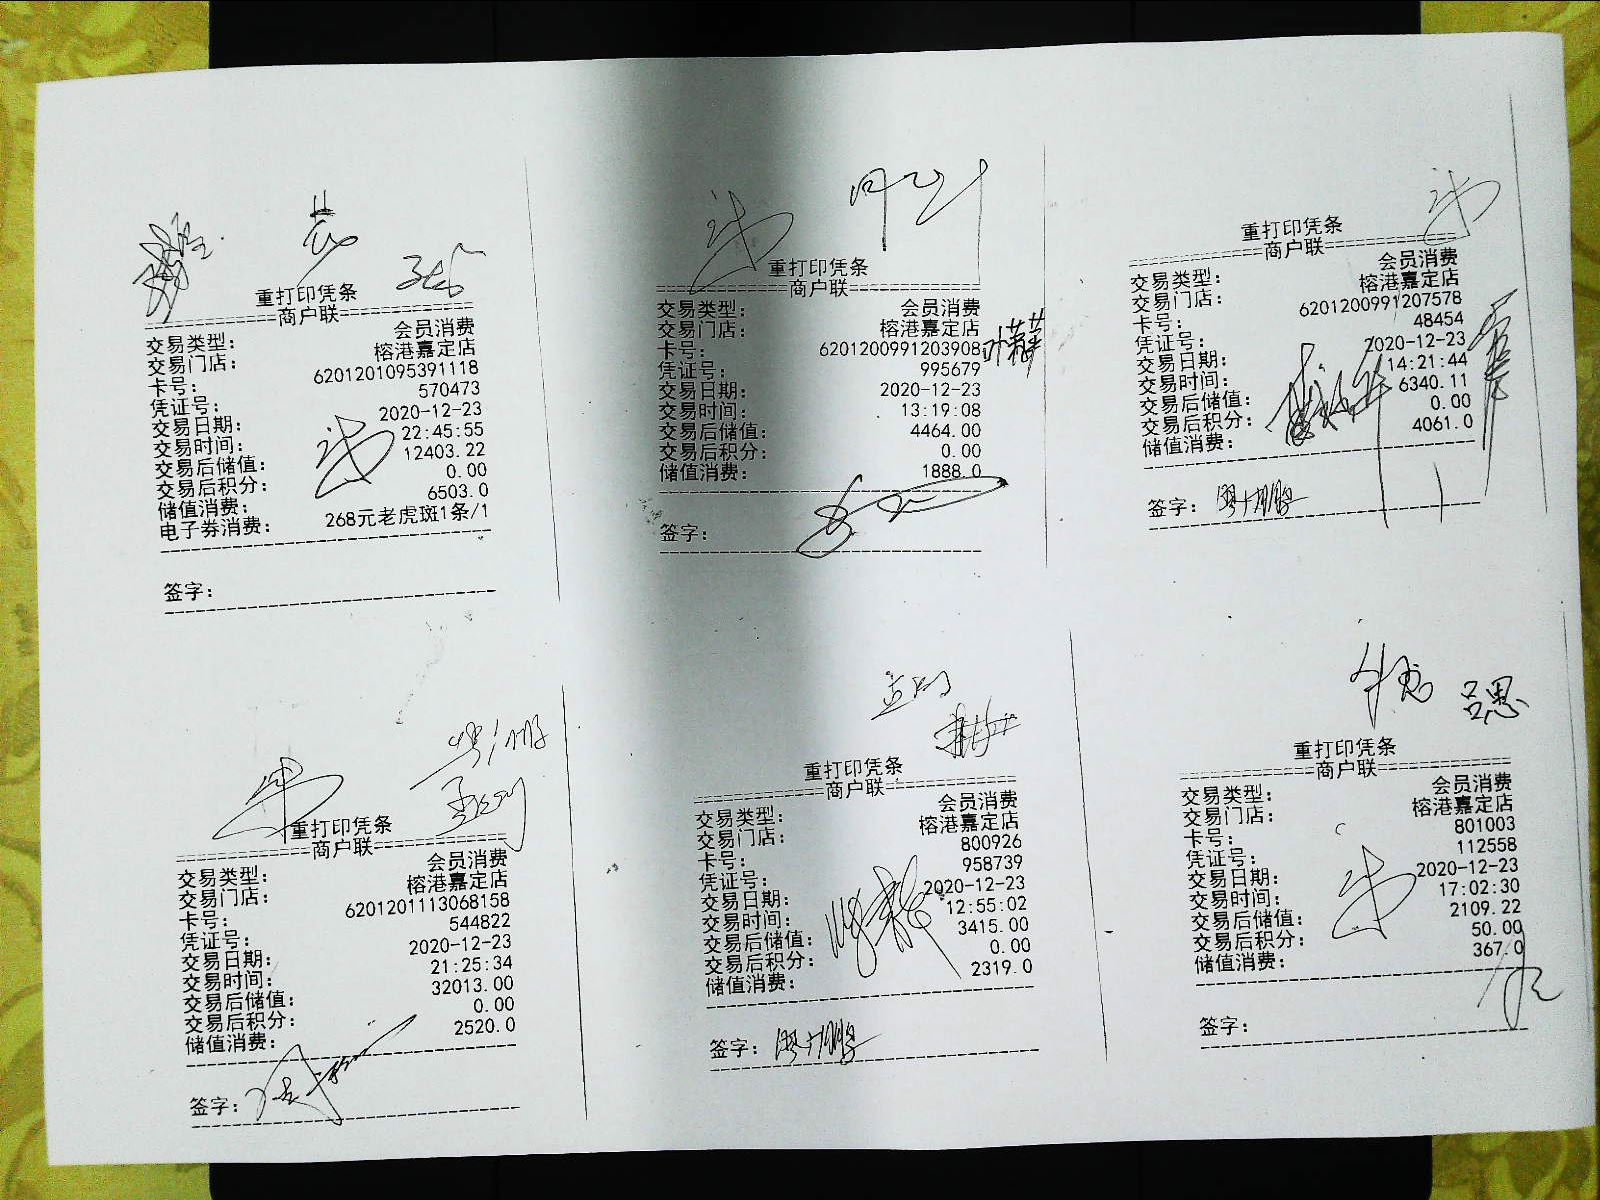 重打印凭条
商户联
交易类型： 会员消费
交易门店： 榕港嘉定店
卡号： 6201201095391118
凭证号： 570473
交易日期： 2020-12-23
交易时间： 22:45:55
交易后储值： 12403.22
交易后积分： 0.00
储值消费： 6503.0
电子券消费： 268元老虎斑1条/1
签字：
重打印凭条
商户联
交易类型： 会员消费
交易门店： 榕港嘉定店
卡号： 6201200991203908
凭证号： 995679
交易日期： 2020-12-23
交易时间： 13:19:08
交易后储值： 4464.00
交易后积分： 0.00
储值消费： 1888.0
签字：
重打印凭条
商户联
交易类型： 会员消费
交易门店： 榕港嘉定店
卡号： 6201200991207578
凭证号： 48454
交易日期： 2020-12-23
交易时间： 14:21:44
交易后储值： 6340.11
交易后积分： 0.00
储值消费： 4061.0
签字：
重打印凭条
商户联
交易类型： 会员消费
交易门店： 榕港嘉定店
卡号： 6201201113068158
凭证号： 544822
交易日期： 2020-12-23
交易时间： 21:25:34
交易后储值： 32013.00
交易后积分： 0.00
储值消费： 2520.0
签字：
重打印凭条
商户联
交易类型： 会员消费
交易门店： 榕港嘉定店
卡号： 800926
凭证号： 958739
交易日期： 2020-12-23
交易时间： 12:55:02
交易后储值： 3415.00
交易后积分： 0.00
储值消费： 2319.0
签字：
吕思
重打印凭条
商户联
交易类型： 会员消费
交易门店： 榕港嘉定店
卡号： 801003
凭证号： 112558
交易日期： 2020-12-23
交易时间： 17:02:30
交易后储值： 2109.22
交易后积分： 50.00
储值消费： 367.0
签字：